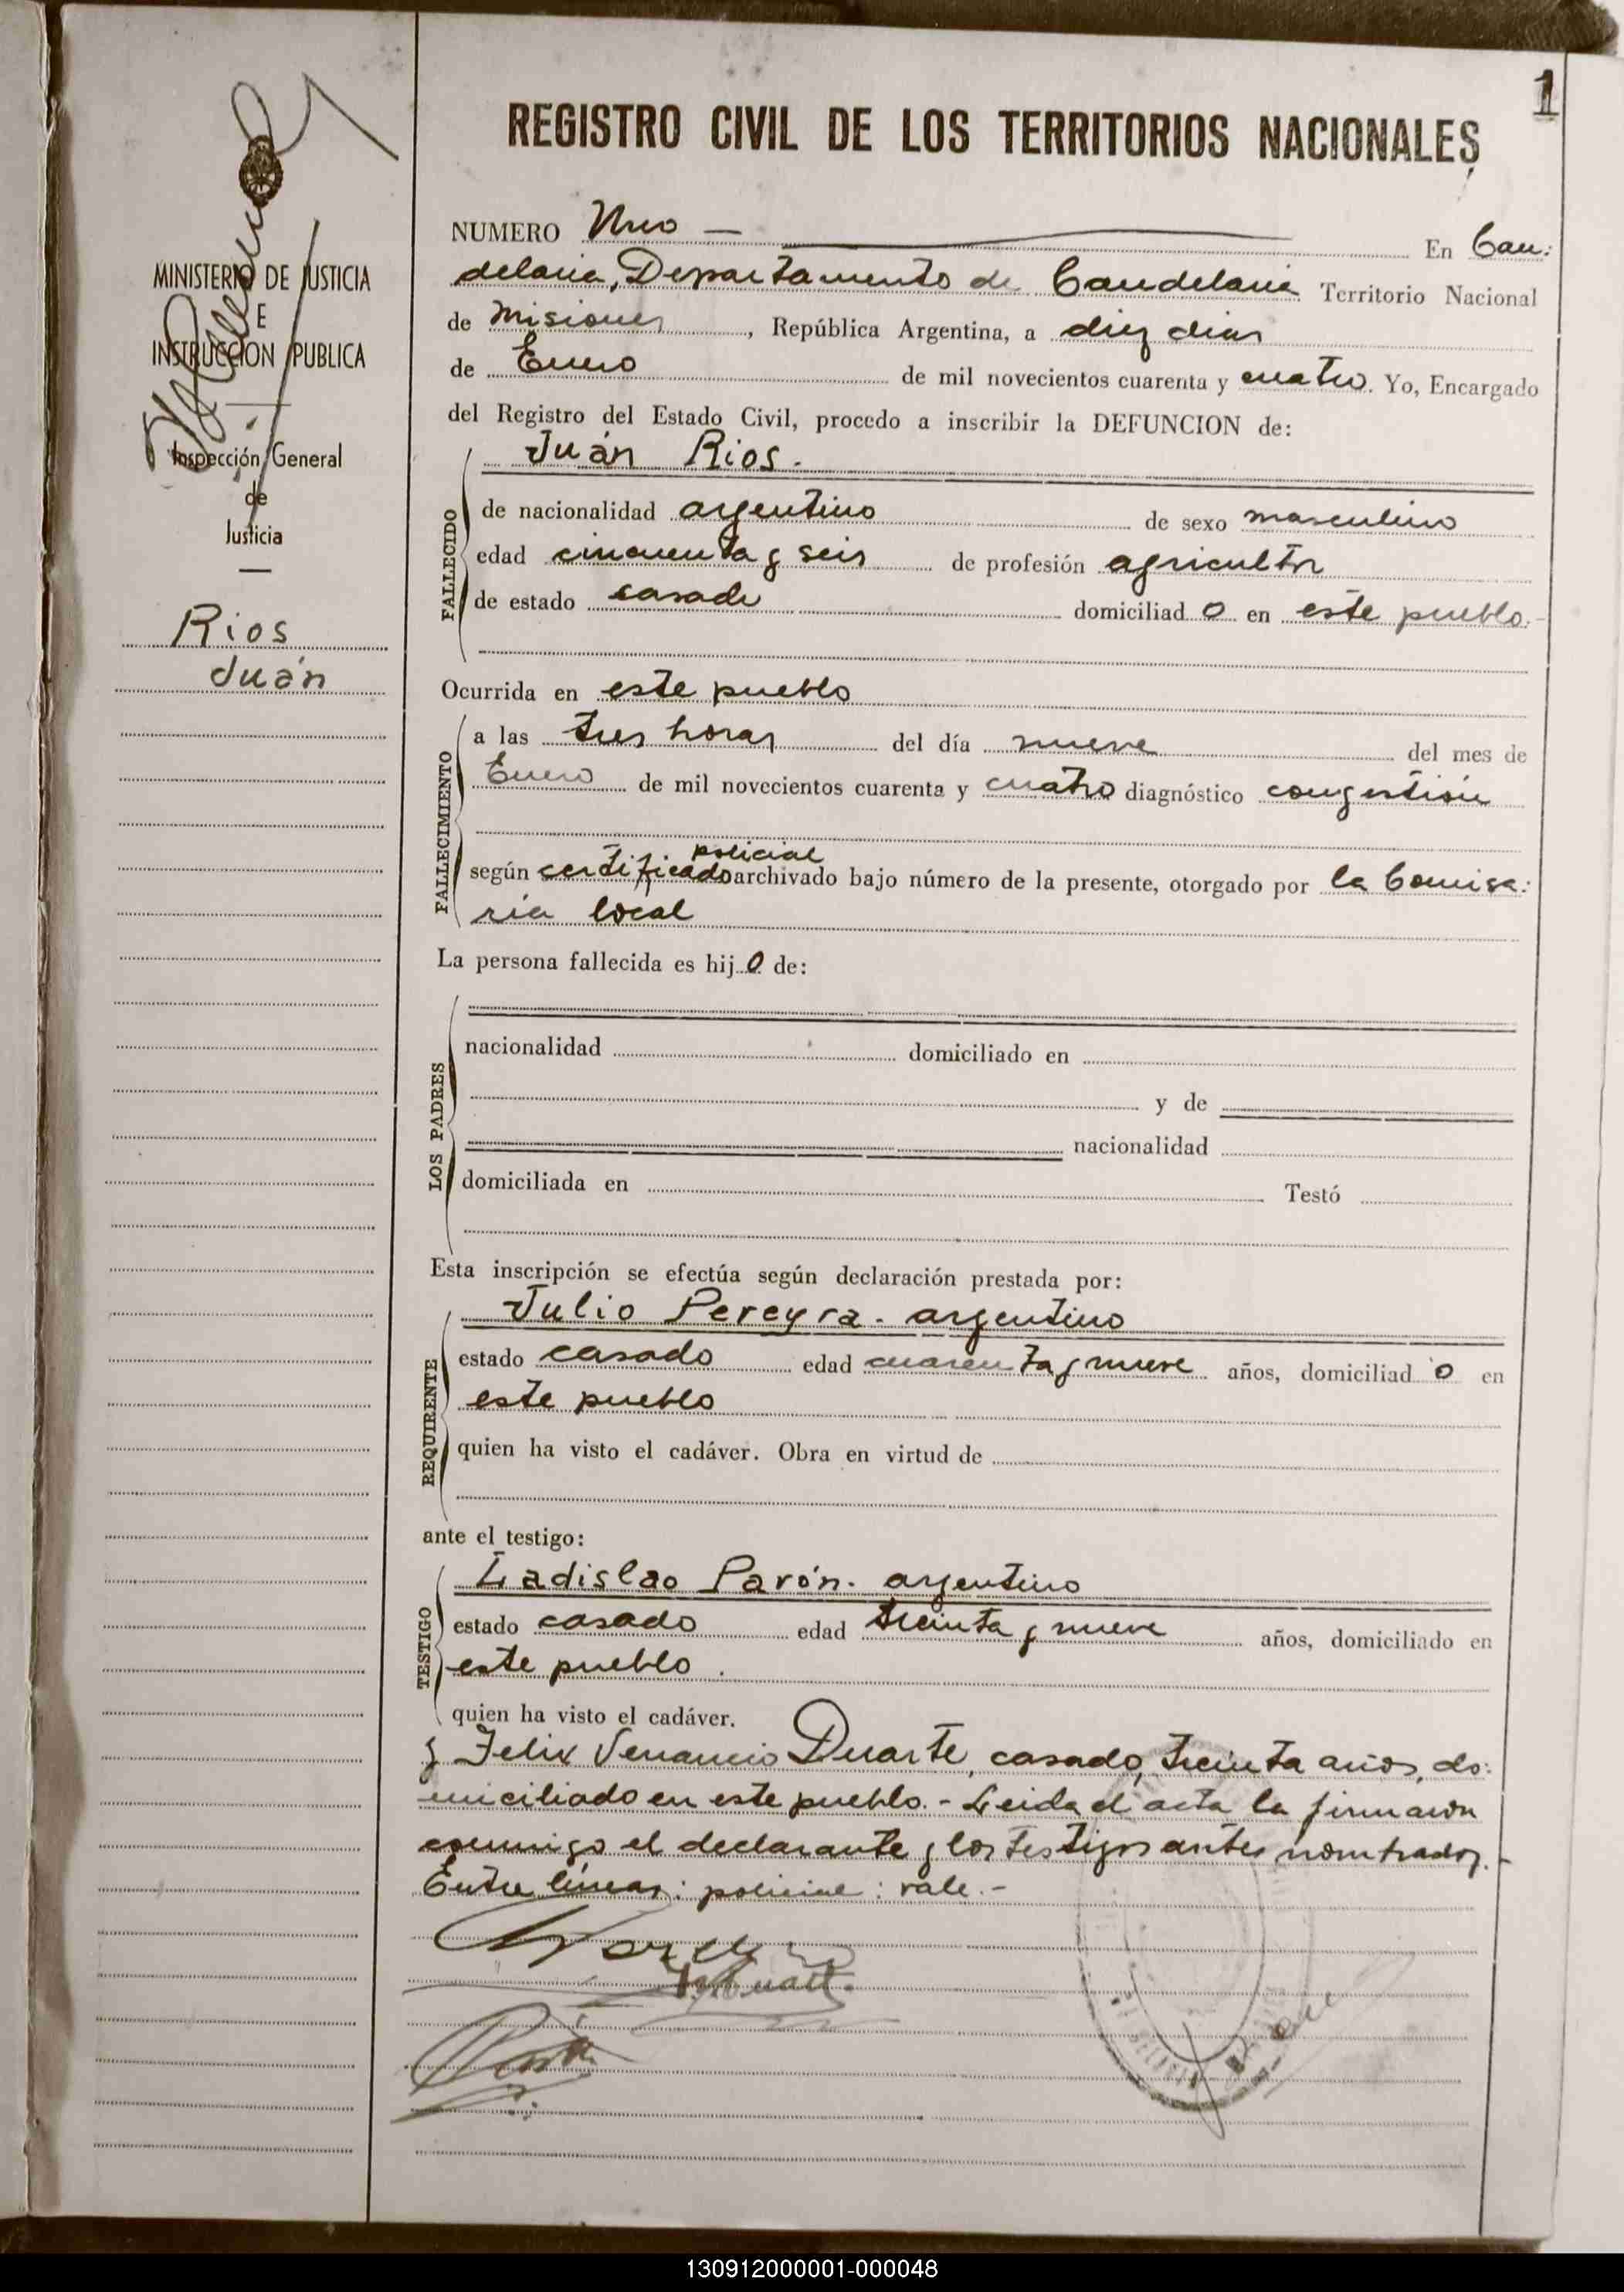 1
REGISTRO CIVIL DE LOS TERRITORIOS NACIONALES
MINISTERIO DE JUSTICIA
E
INSTRUCCION PUBLICA
Inspección General
de
Justicia
Rios
Juán
NUMERO Uno — En Can:
delaria, Departamento de Candelaria Territorio Nacional
de Misiones, República Argentina, a diez dias
de Enero de mil novecientos cuarenta y cuatro. Yo, Encargado
del Registro del Estado Civil, procedo a inscribir la DEFUNCION de:
Juán Rios.
FALLECIDO
de nacionalidad argentino de sexo masculino
edad cincuenta y seis de profesión agricultor
de estado casado domiciliado en este pueblo.-
Ocurrida en este pueblo
FALLECIMIENTO
a las tres horas del día nueve del mes de
Enero de mil novecientos cuarenta y cuatro diagnóstico congestión
policial
según certificado archivado bajo número de la presente, otorgado por la Comisa:
ria local
La persona fallecida es hijo de:
LOS PADRES
nacionalidad domiciliado en
y de
nacionalidad
domiciliada en Testó
Esta inscripción se efectúa según declaración prestada por:
Julio Pereyra. argentino
REQUIRENTE
estado casado edad cuarenta y nueve años, domiciliado en
este pueblo
quien ha visto el cadáver. Obra en virtud de
ante el testigo:
Ladislao Pavón. argentino
TESTIGO
estado casado edad treinta y nueve años, domiciliado en
este pueblo.
quien ha visto el cadáver.
y Felix Venancio Duarte, casado, treinta años, do:
miciliado en este pueblo.- Leida el acta la firmaron
conmigo el declarante y los testigos antes nombrados.-
Entre líneas: policial: vale.-
130912000001-000048